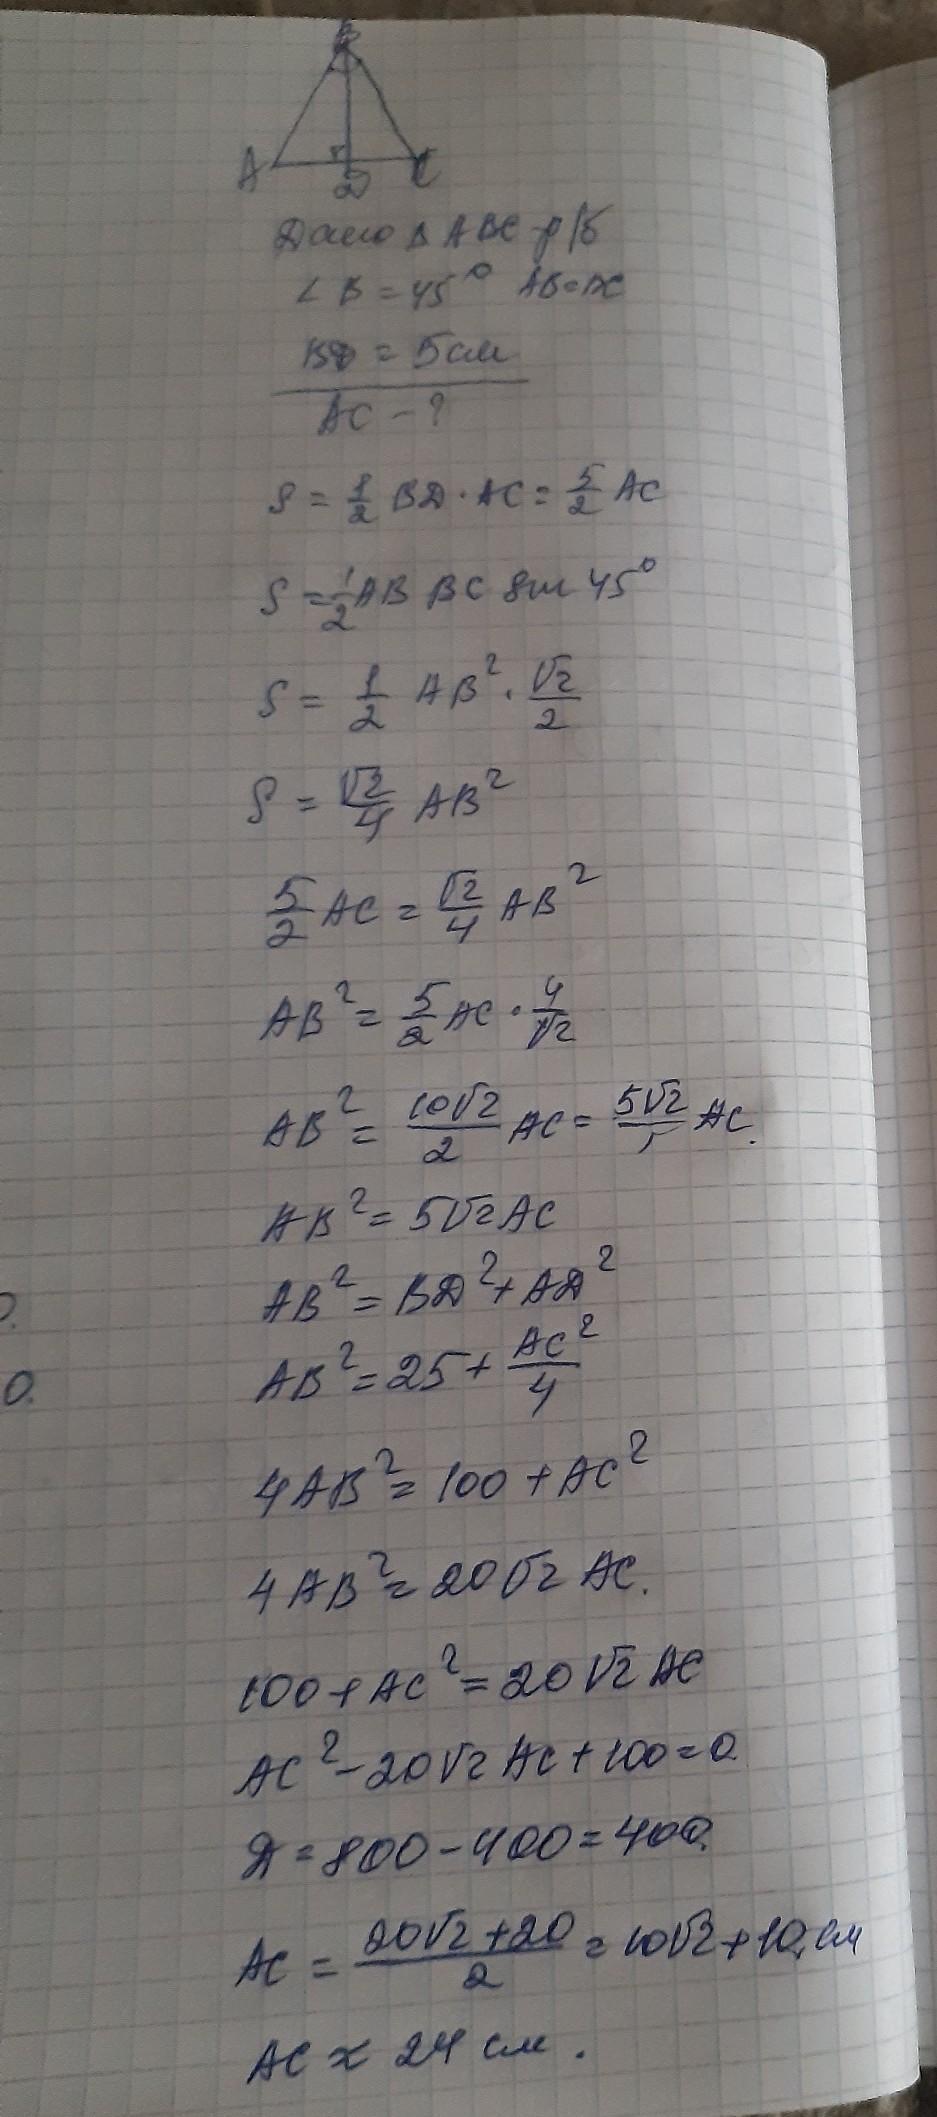 B
A
D
C
Дано Δ ABC - р/б
∠ B = 45° AB=BC
BD = 5 см
AC - ?
S = 1/2 BD · AC = 5/2 AC
S = 1/2 AB BC sin 45°
S = 1/2 AB² · √2/2
S = √2/4 AB²
5/2 AC = √2/4 AB²
AB² = 5/2 AC · 4/√2
AB² = 10√2/2 AC = 5√2/1 AC.
AB² = 5√2 AC
AB² = BD² + AD²
AB² = 25 + AC²/4
0.
4AB² = 100 + AC²
4AB² = 20√2 AC.
100 + AC² = 20√2 AC
AC² - 20√2 AC + 100 = 0
D = 800 - 400 = 400.
AC = 20√2 + 20/2 = 10√2 + 10 см
AC ≈ 24 см.